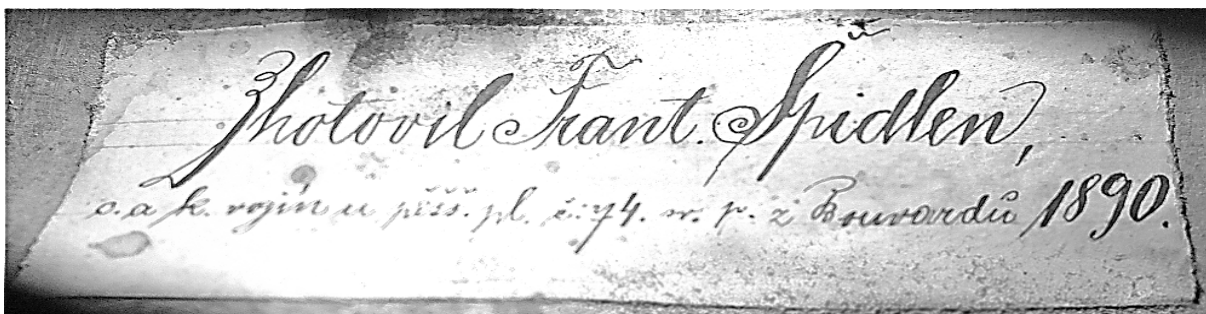 Zhotovil Frant. Špidlen,
c. a k. vojín u pěš. pl. č. 74. sv. p. z Bouvardů 1890.